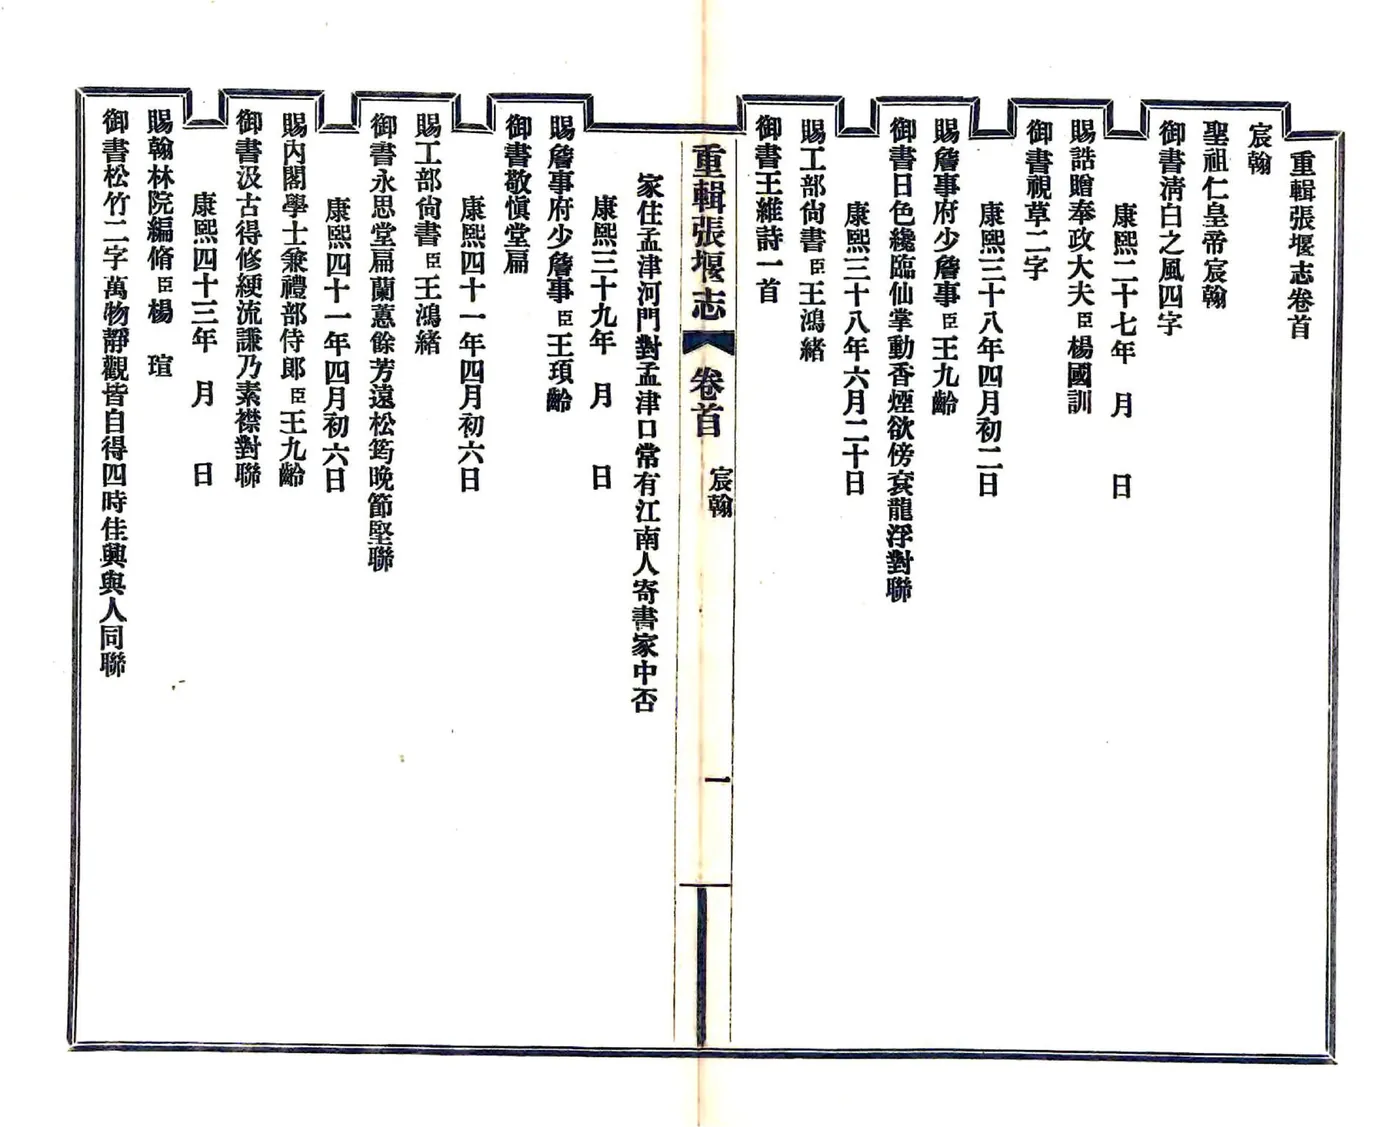 重輯張堰志卷首
宸翰
聖祖仁皇帝宸翰
御書淸白之風四字
康熙二十七年　月　日
賜誥贈奉政大夫臣楊國訓
御書視草二字
康熙三十八年四月初二日
賜詹事府少詹事臣王九齡
御書日色纔臨仙掌動香煙欲傍袞龍浮對聯
康熙三十八年六月二十日
賜工部尙書臣王鴻緒
御書王維詩一首
重輯張堰志　卷首　宸翰　一
家住孟津河門對孟津口常有江南人寄書家中否
康熙三十九年　月　日
賜詹事府少詹事臣王頊齡
御書敬愼堂扁
康熙四十一年四月初六日
賜工部尙書臣王鴻緒
御書永思堂扁蘭蕙餘芳遠松筠晚節堅聯
康熙四十一年四月初六日
賜內閣學士兼禮部侍郞臣王九齡
御書汲古得修綆流謙乃素襟對聯
康熙四十三年　月　日
賜翰林院編脩臣楊　瑄
御書松竹二字萬物靜觀皆自得四時佳興與人同聯